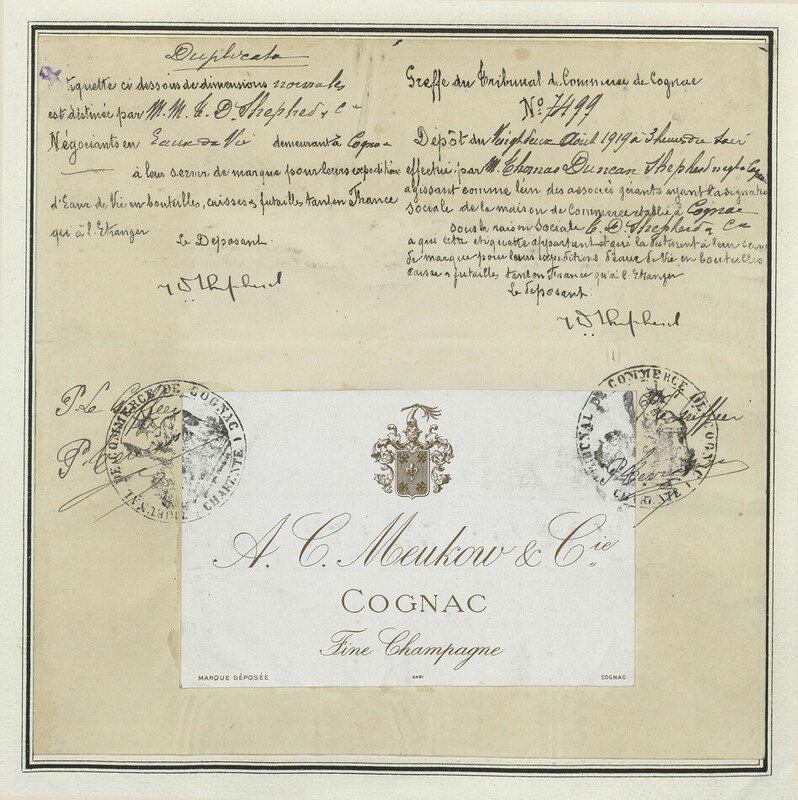 Duplicata
Etiquette ci dessous de dimensions normales
est destinée par M. M. T. D. Shepherd & Cie
Négociants en Eaux de Vie demeurant à Cognac
à leur servir de marque pour leurs expéditions
d'Eaux de Vie en bouteilles, caisses & futailles tant en France
qu'à l'Etranger
Le Déposant
T D Shepherd
Greffe du Tribunal de Commerce de Cognac
No 7499
Dépôt du Vingt deux Août 1919 à 3 heures du soir
effectué par M. Thomas Duncan Shepherd negt à Cognac
agissant comme l'un des associés gérants ayant la signature
sociale de la maison de Commerce établie à Cognac
sous la raison sociale T. D. Shepherd & Cie
à qui cette etiquette appartient et qui la destinent à leur servir
de marque pour leurs expéditions d'eaux de Vie en bouteilles
caisses & futailles tant en France qu'à l'Etranger
Le déposant
T D Shepherd
P. Le Greffier
TRIBUNAL DE COMMERCE DE COGNAC
CHARENTE
Pr Le Greffier
TRIBUNAL DE COMMERCE DE COGNAC
CHARENTE
A. C. Meukow & Cie
COGNAC
Fine Champagne
MARQUE DÉPOSÉE
COGNAC